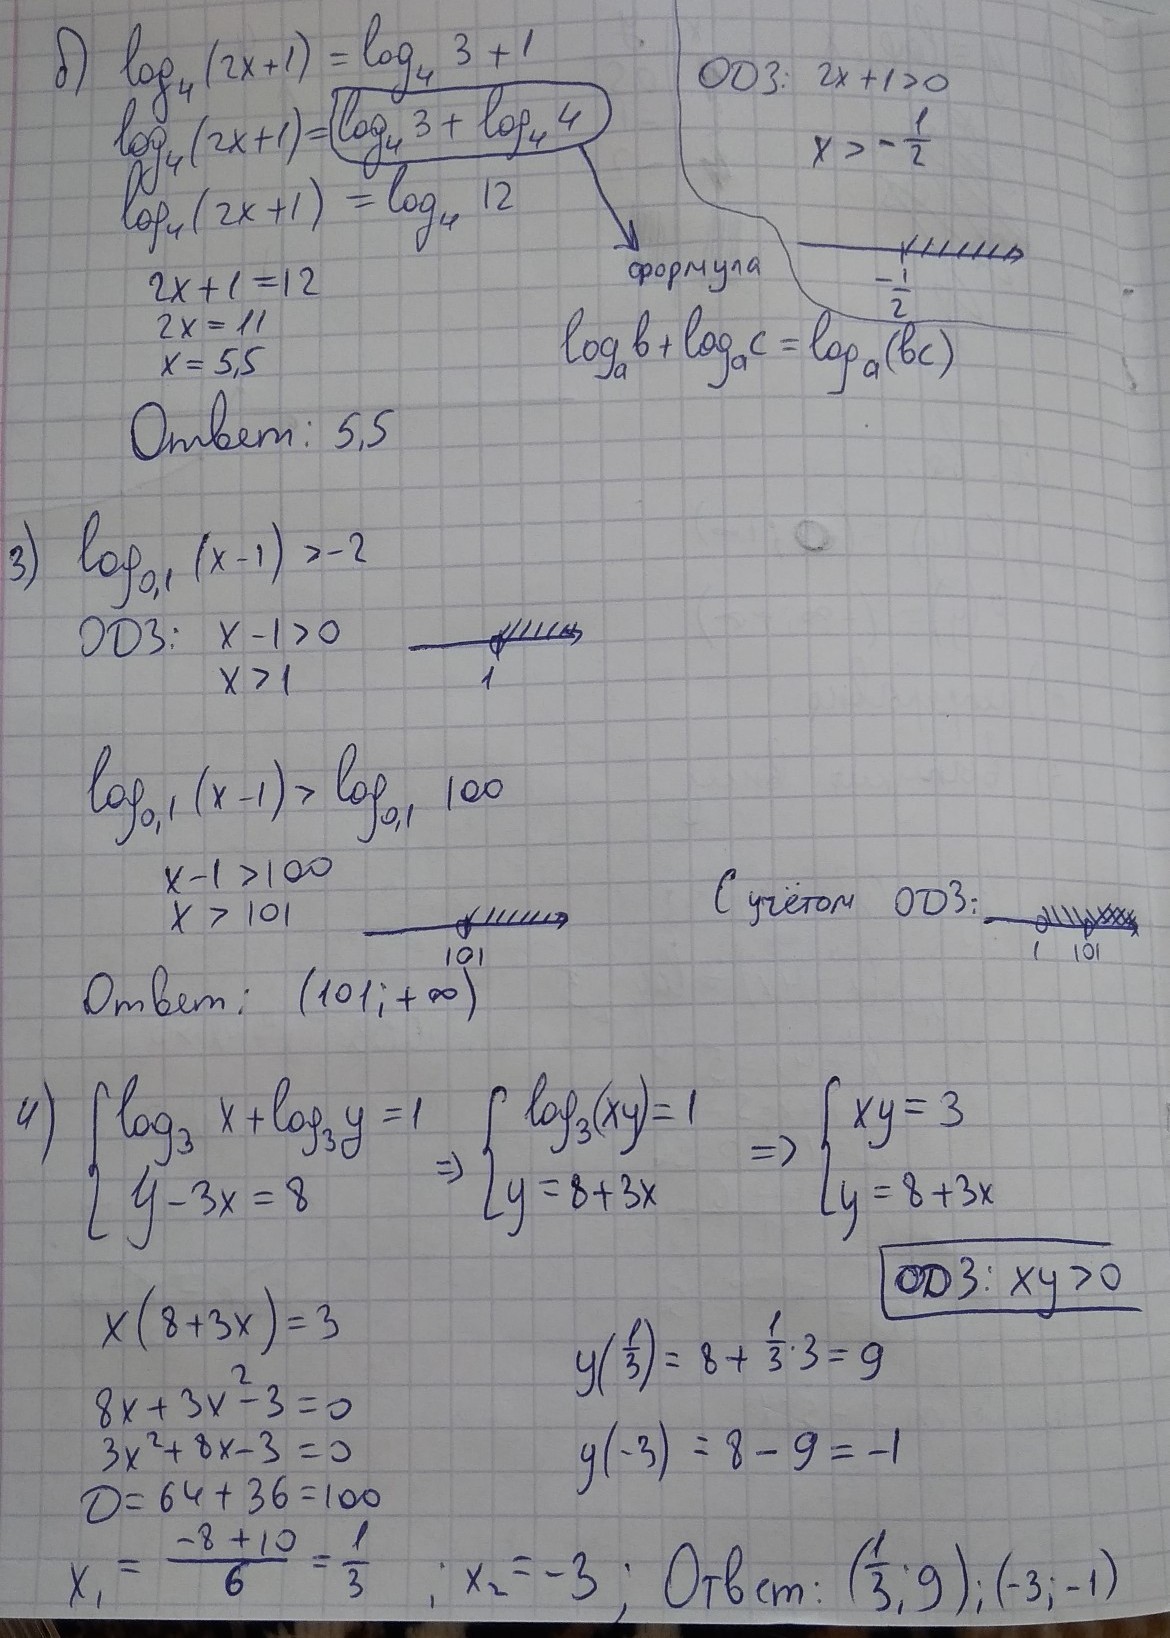 б) log₄(2x+1) = log₄ 3 + 1
log₄(2x+1) = log₄ 3 + log₄ 4
log₄(2x+1) = log₄ 12
2x+1=12
2x=11
x=5,5
Ответ: 5,5
ОДЗ: 2x+1>0
x > -1/2
-1/2
формула
logₐb + logₐc = logₐ(bc)
3) log₀,₁ (x-1) > -2
ОДЗ: x-1>0
x>1
1
log₀,₁ (x-1) > log₀,₁ 100
x-1>100
x > 101
101
С учётом ОДЗ:
1 101
Ответ: (101; +∞)
4) { log₃ x + log₃ y = 1 => { log₃(xy) = 1 => { xy = 3
y - 3x = 8 y = 8+3x y = 8+3x
ОДЗ: xy>0
x(8+3x) = 3
8x+3x²-3=0
3x²+8x-3=0
D=64+36=100
y(1/3) = 8 + 1/3·3 = 9
y(-3) = 8 - 9 = -1
x₁ = (-8+10)/6 = 1/3 ; x₂ = -3 ; Ответ: (1/3; 9); (-3; -1)